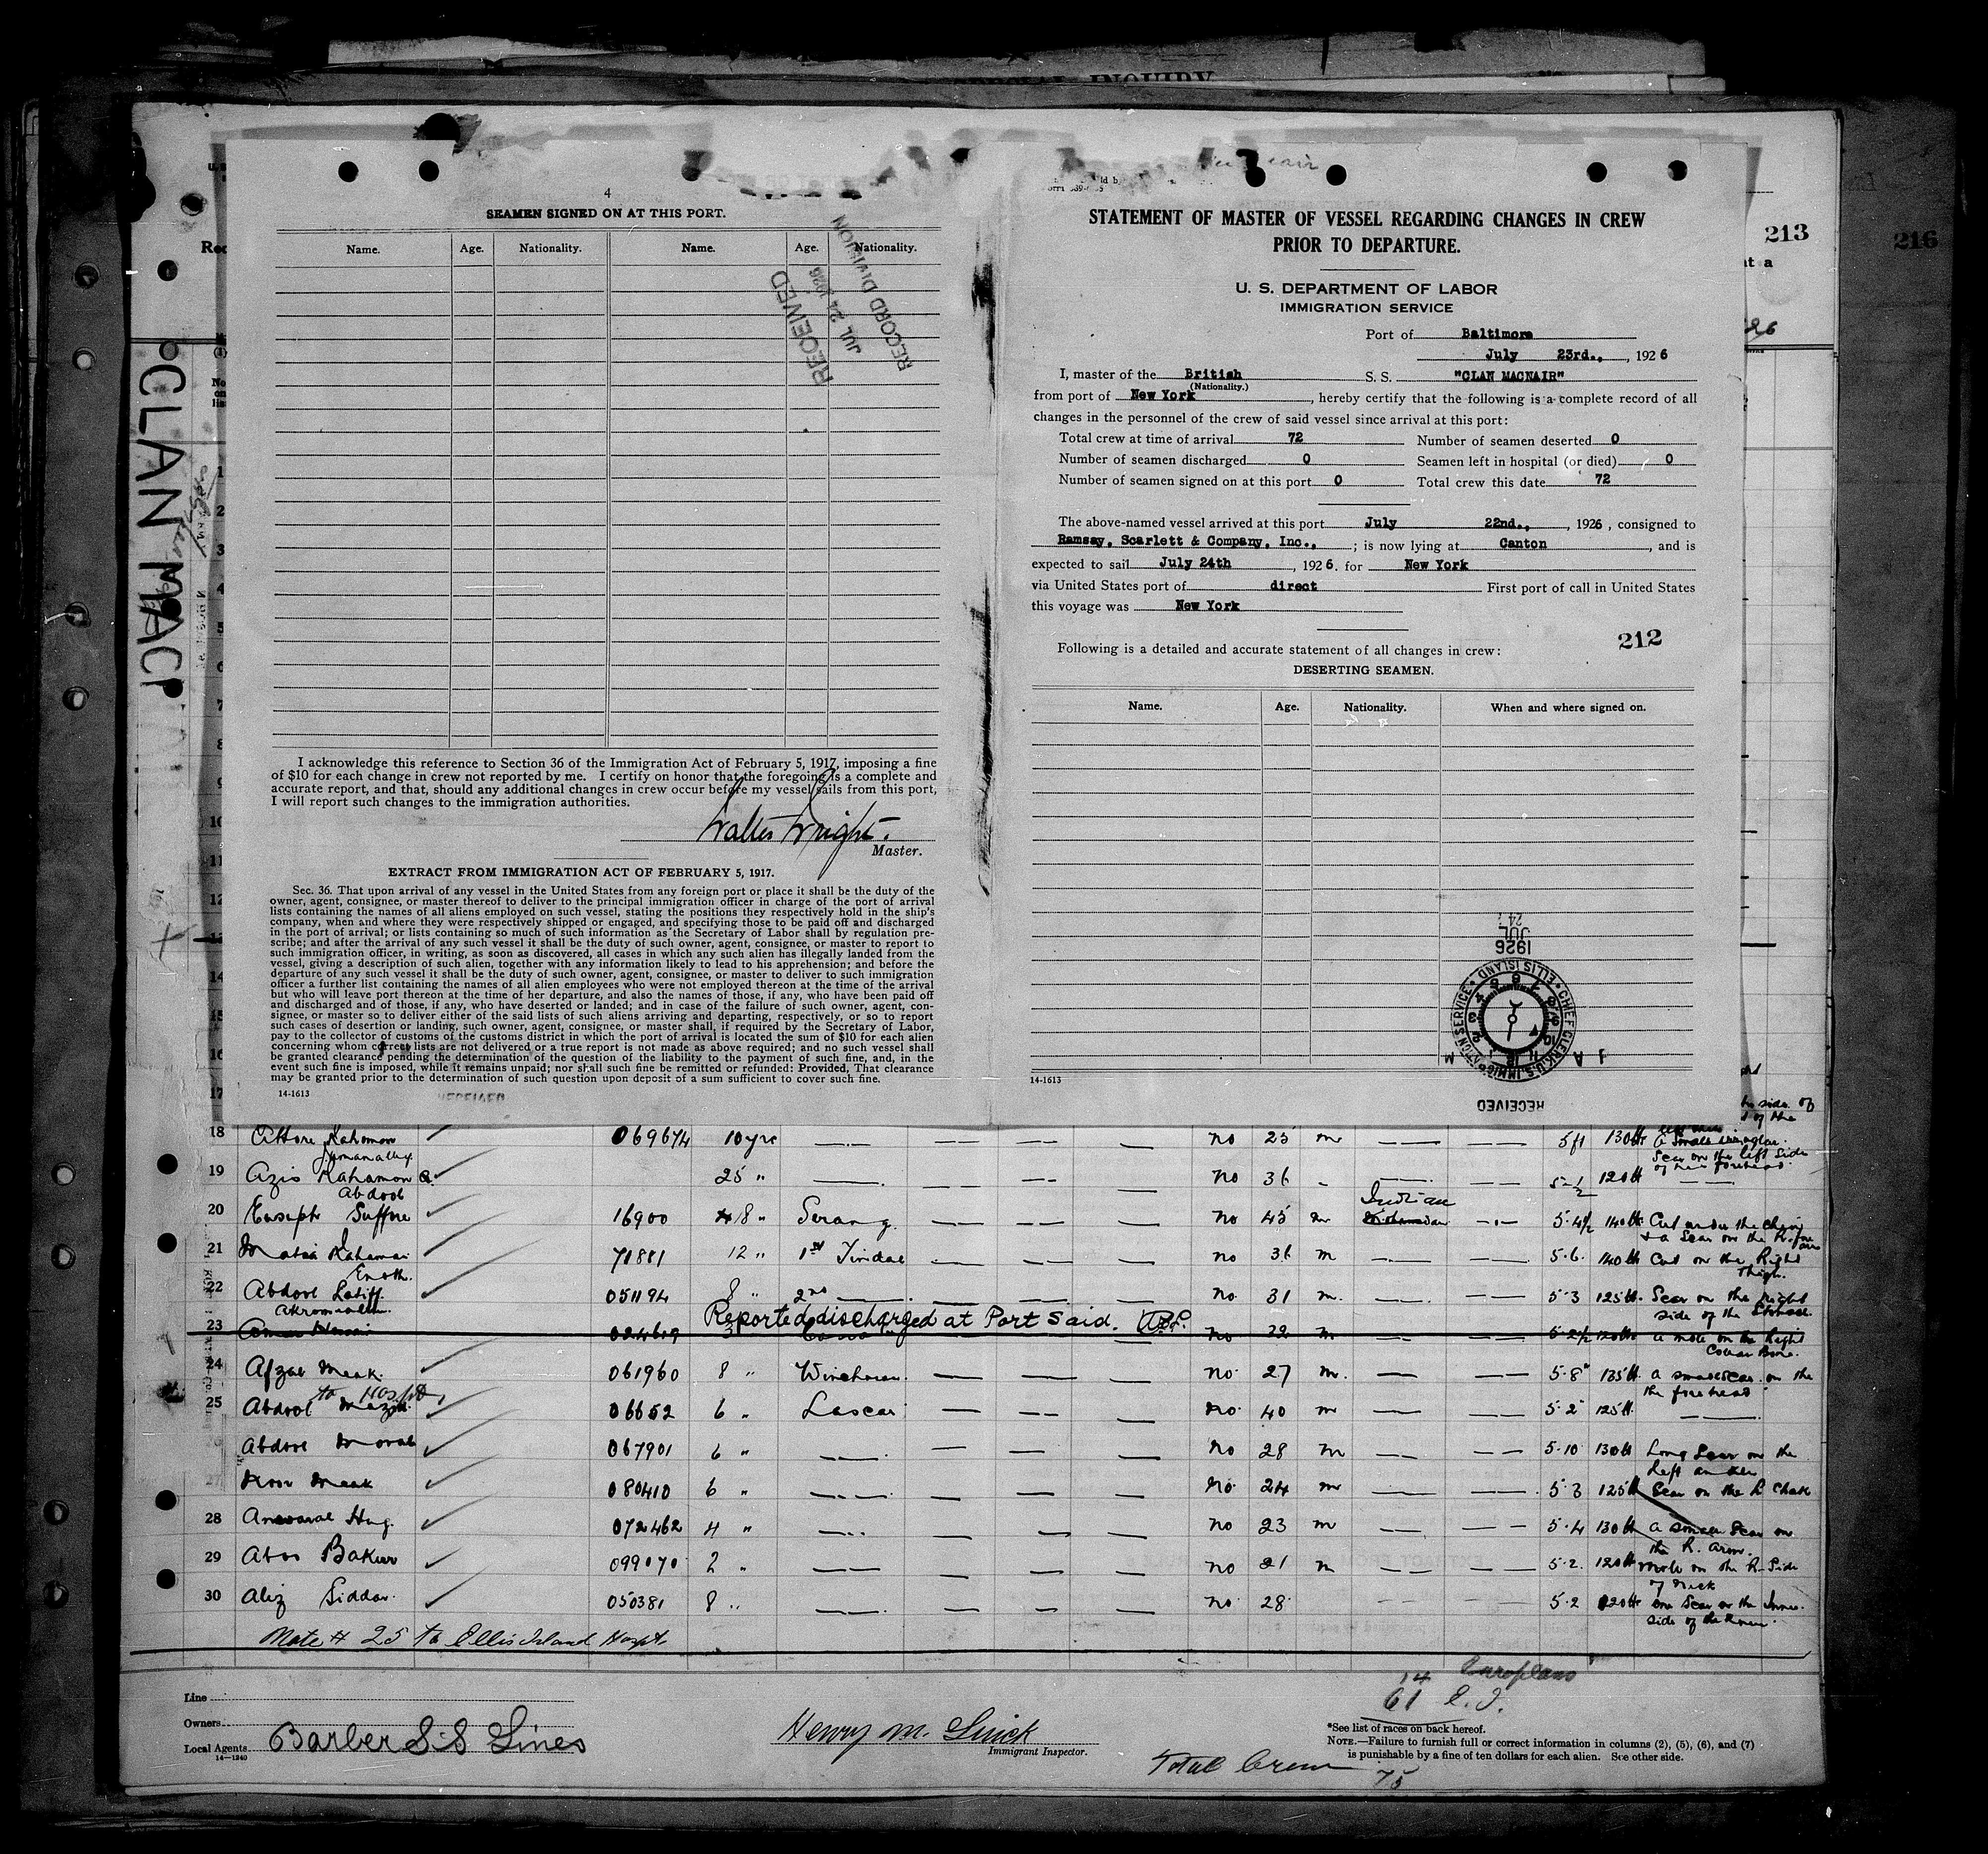 SPECIAL INQUIRY
213
216
CLAN MACN
4
SEAMEN SIGNED ON AT THIS PORT.
Name. Age. Nationality. Name. Age. Nationality.
RECEIVED
JUL 24 1926
RECORD DIVISION
I acknowledge this reference to Section 36 of the Immigration Act of February 5, 1917, imposing a fine
of $10 for each change in crew not reported by me. I certify on honor that the foregoing is a complete and
accurate report, and that, should any additional changes in crew occur before my vessel sails from this port,
I will report such changes to the immigration authorities.
Walter Wright.
Master.
EXTRACT FROM IMMIGRATION ACT OF FEBRUARY 5, 1917.
Sec. 36. That upon arrival of any vessel in the United States from any foreign port or place it shall be the duty of the
owner, agent, consignee, or master thereof to deliver to the principal immigration officer in charge of the port of arrival
lists containing the names of all aliens employed on such vessel, stating the positions they respectively hold in the ship's
company, when and where they were respectively shipped or engaged, and specifying those to be paid off and discharged
in the port of arrival; or lists containing so much of such information as the Secretary of Labor shall by regulation pre-
scribe; and after the arrival of any such vessel it shall be the duty of such owner, agent, consignee, or master to report to
such immigration officer, in writing, as soon as discovered, all cases in which any such alien has illegally landed from the
vessel, giving a description of such alien, together with any information likely to lead to his apprehension; and before the
departure of any such vessel it shall be the duty of such owner, agent, consignee, or master to deliver to such immigration
officer a further list containing the names of all alien employees who were not employed thereon at the time of the arrival
but who will leave port thereon at the time of her departure, and also the names of those, if any, who have been paid off
and discharged and of those, if any, who have deserted or landed; and in case of the failure of such owner, agent, con-
signee, or master so to deliver either of the said lists of such aliens arriving and departing, respectively, or so to report
such cases of desertion or landing, such owner, agent, consignee, or master shall, if required by the Secretary of Labor,
pay to the collector of customs of the customs district in which the port of arrival is located the sum of $10 for each alien
concerning whom correct lists are not delivered or a true report is not made as above required; and no such vessel shall
be granted clearance pending the determination of the question of the liability to the payment of such fine, and, in the
event such fine is imposed, while it remains unpaid; nor shall such fine be remitted or refunded: Provided, That clearance
may be granted prior to the determination of such question upon deposit of a sum sufficient to cover such fine.
14-1613
RECEIVED
STATEMENT OF MASTER OF VESSEL REGARDING CHANGES IN CREW
PRIOR TO DEPARTURE.
U. S. DEPARTMENT OF LABOR
IMMIGRATION SERVICE
Port of Baltimore
July 23rd., , 1926
I, master of the British S. S. "CLAN MACNAIR"
(Nationality.)
from port of New York , hereby certify that the following is a complete record of all
changes in the personnel of the crew of said vessel since arrival at this port:
Total crew at time of arrival 72 Number of seamen deserted 0
Number of seamen discharged 0 Seamen left in hospital (or died) 0
Number of seamen signed on at this port 0 Total crew this date 72
The above-named vessel arrived at this port July 22nd., , 1926 , consigned to
Ramsay, Scarlett & Company, Inc., ; is now lying at Canton , and is
expected to sail July 24th , 1926. for New York
via United States port of direct First port of call in United States
this voyage was New York
212
Following is a detailed and accurate statement of all changes in crew:
DESERTING SEAMEN.
Name. Age. Nationality. When and where signed on.
JUL 24
1926
CHIEF CLERK U.S. IMMIGRATION SERVICE • ELLIS ISLAND
RECEIVED
14-1613
18 Kahamon 069674 10 yrs no 25 m 5ft 130 lb a small
Scar on the left side
of his forehead
19 Azis Rahamon 25 " no 36 120 lb
Abdool
20 16900 18 " Serang no 45 m Indian 5.4½ 140 lb Cut under the Chin
& a Scar on the R.
21 71881 12 " 1st Tindal no 36 m 5.6. 140 lb Cut on the Right
Thigh.
22 Abdool Latiff 051194 8 " 2nd no. 31 m. 5.3 125 lb. Scar on the Right
side of the
Reported discharged at Port Said.
23 024619 3 no m 5.2½ 120 lb a mole on the Right
Collar Bone.
24 Afzal Meak. 061960 8 " Winchman no. 27 m. 5.8" 135 lb. a small scar on the
the forehead
to Hospt.
25 Abdool 06652 6 " Lascar no. 40 m 5.2 125 lb.
067901 6 " no 28 m 5.10 130 lb Long Scar on the
Left
27 Noor Meak 080410 6 " no. 24 m 5.3 125 lb Scar on the R Cheek
28 072462 4 " no 23 m 5.4 130 lb a small Scar on
the R. arm.
29 Aboo Baker 099070 2 " no 21 m 5.2. 120 lb mole on the R. Side
of neck
30 Siddar. 050381 8 " no. 28. 5.2 120 lb Scar on the Inner
side of the Knee.
Note # 25 to Ellis Island Hospt.
Line
Owners
Local Agents Barber S.S Lines
14-1240
Henry M.
Immigrant Inspector.
14 Europeans
61 E. I.
*See list of races on back hereof.
NOTE.—Failure to furnish full or correct information in columns (2), (5), (6), and (7)
is punishable by a fine of ten dollars for each alien. See other side.
Total Crew 75